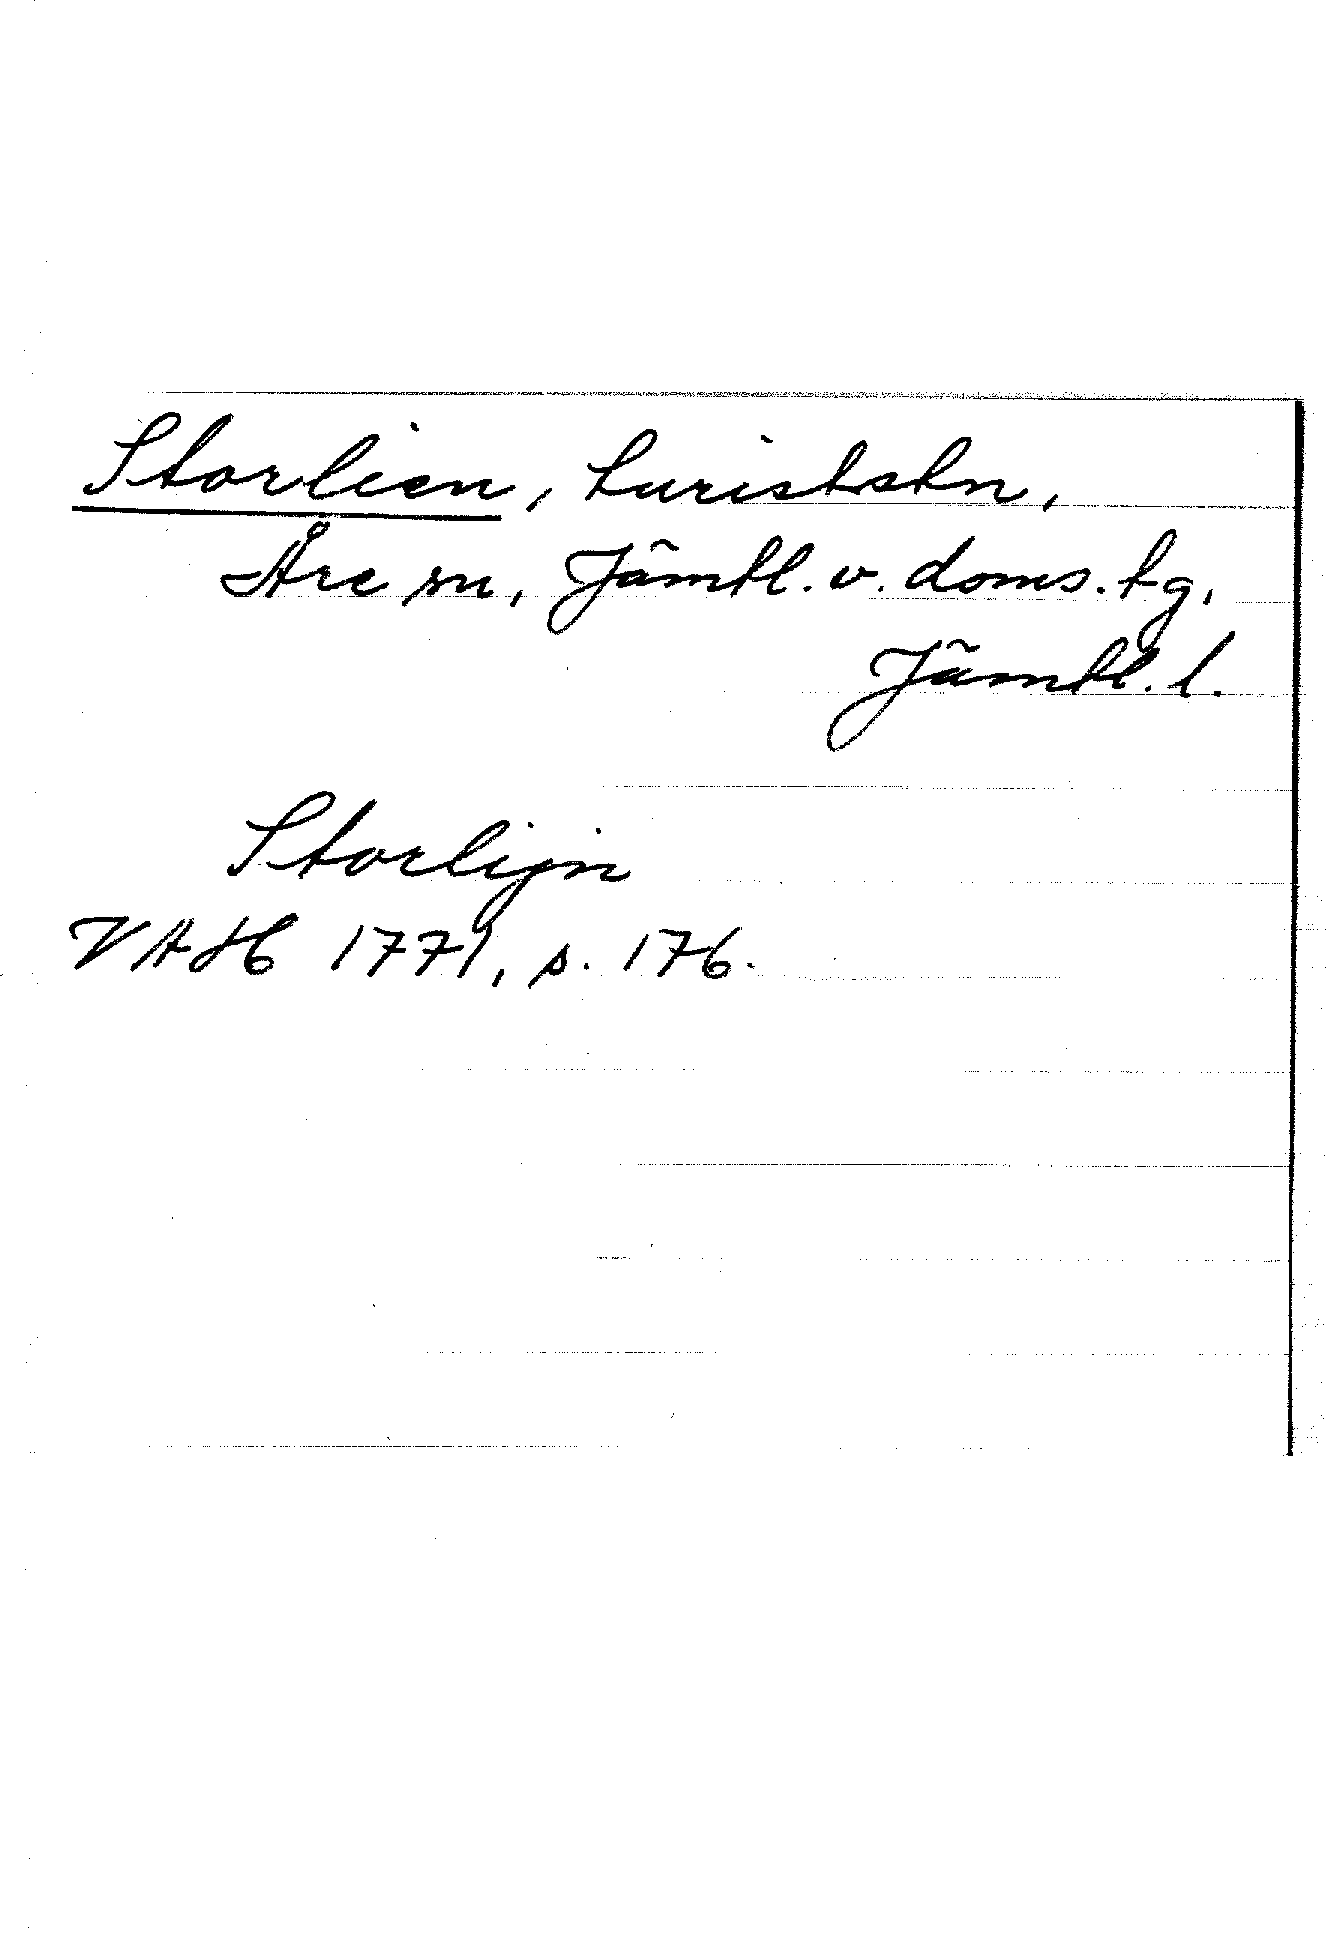 Storlien, turiststn,
Åre sn, Jämtl. v. doms. tg,
Jämtl. l.
Storlijn
VAH 1771, s. 176.